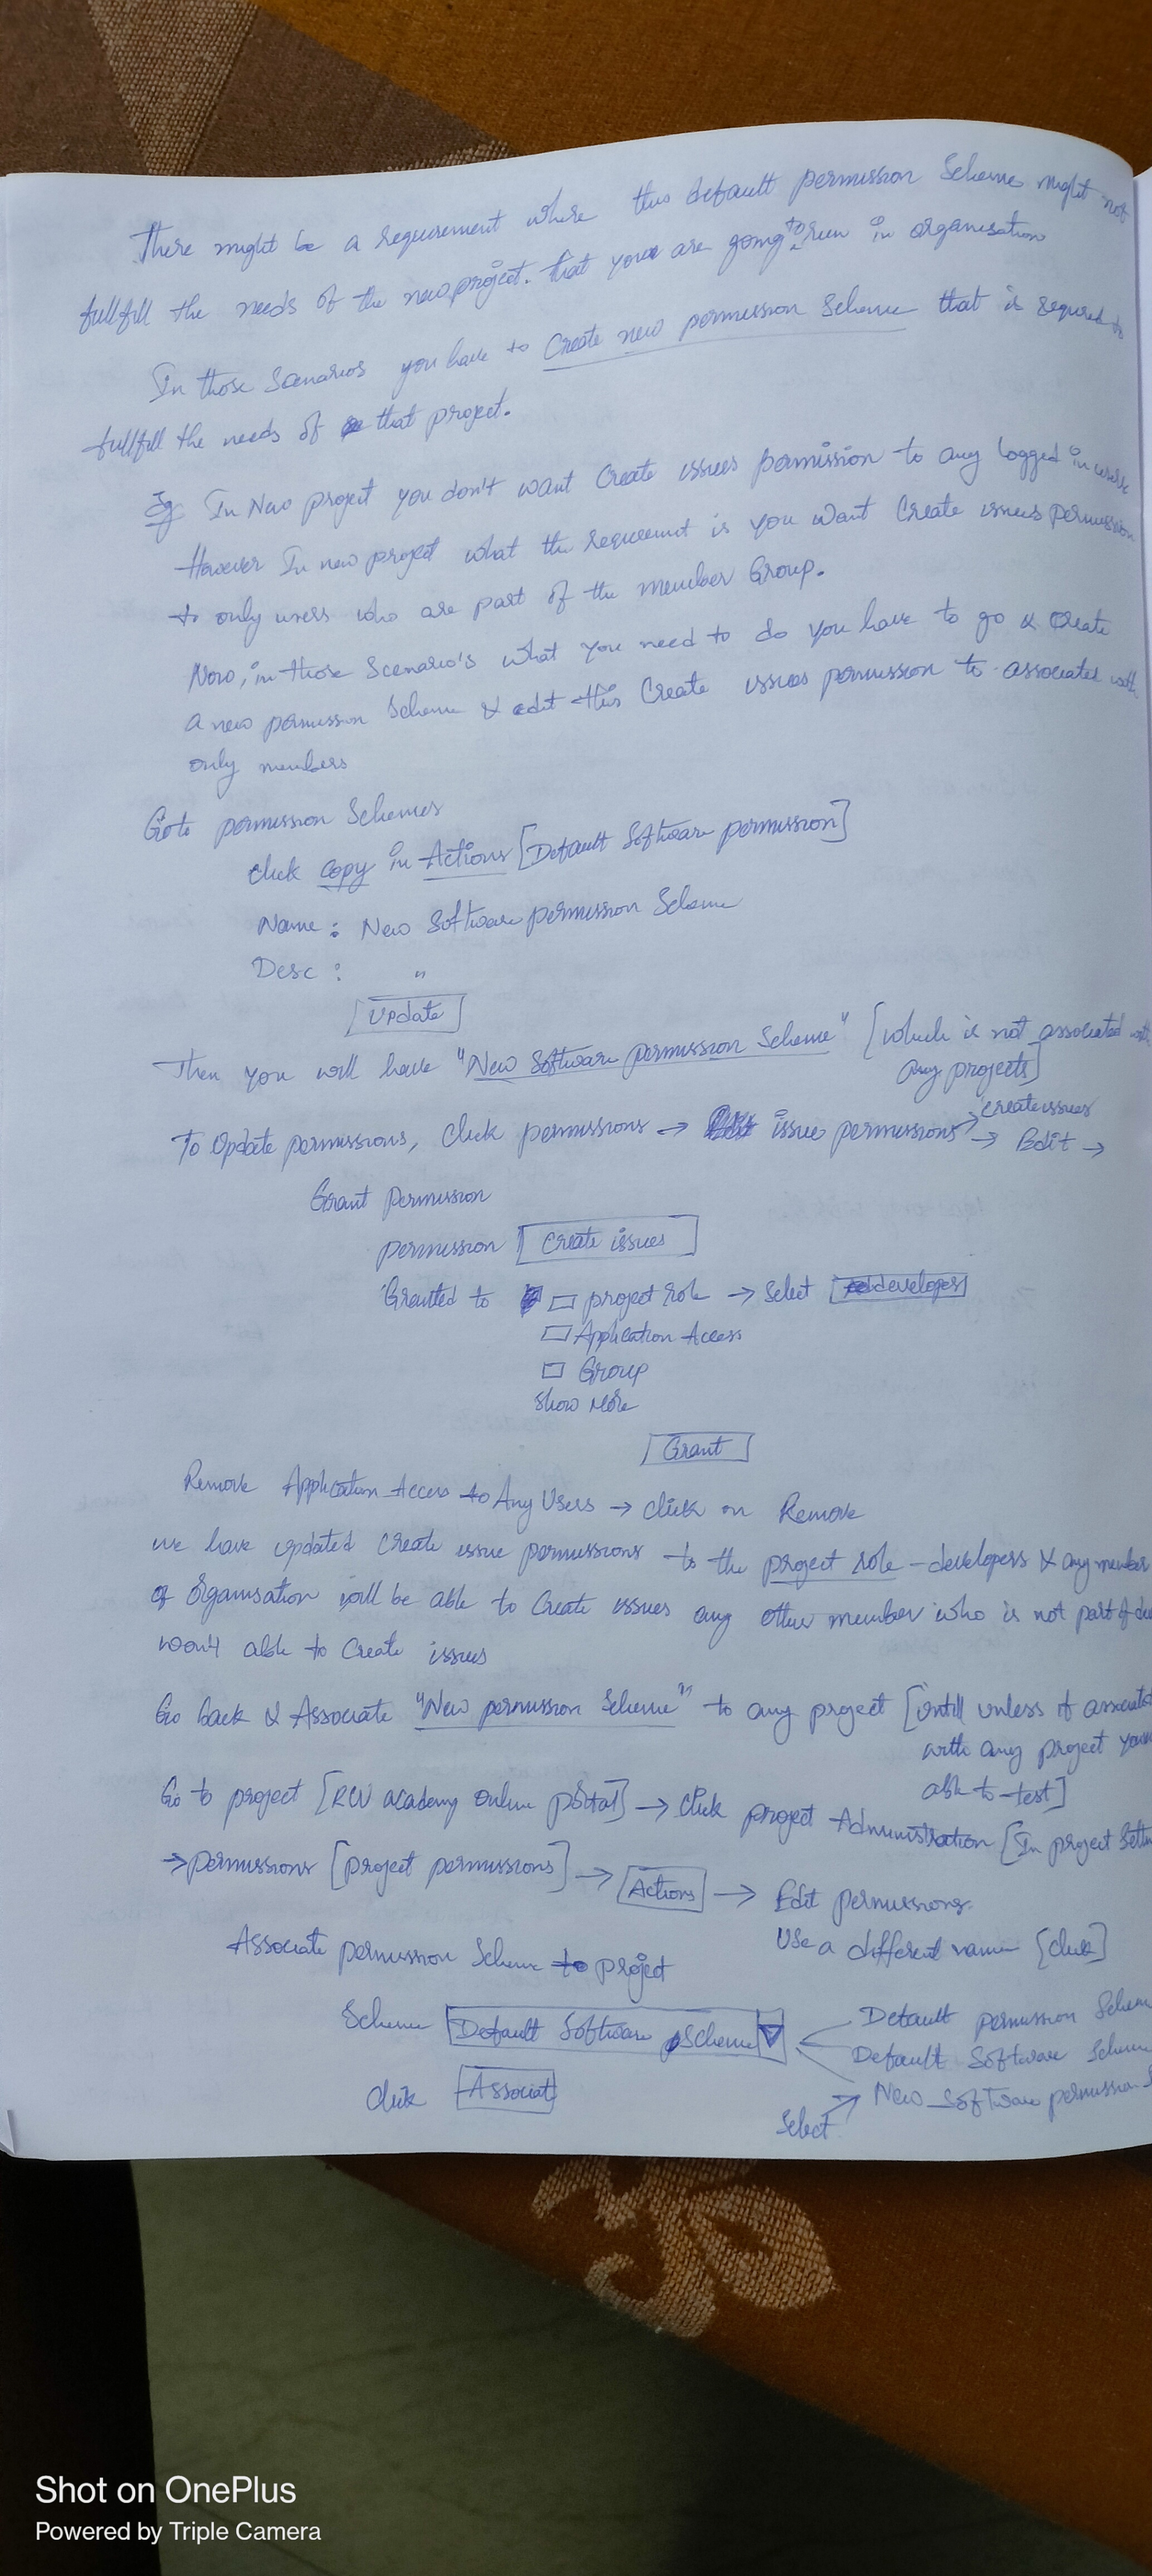 There might be a requirement where this default permission Scheme might not
fullfill the needs of the new project. that your are going to run in organisation
In those Scenarios you have to Create new permission Scheme that is required to
fullfill the needs of that project.
Eg In New project you don't want Create issues permission to any logged in users
However In new project what the requirement is you want Create issues permission
to only users who are part of the member Group.
Now, in those Scenario's what you need to do you have to go & Create
a new permission Scheme & edit this Create issues permission to associated with
only members
Goto permission Schemes
click copy in Actions [Default Software permission]
Name : New Software permission Scheme
Desc : "
Update
Then you will have "New Software permission Scheme" [which is not associated with
any projects]
To Update permissions, click permissions → issue permissions → create issues → Edit →
Grant Permission
permission [Create issues]
Granted to project role → Select developer
Application Access
Group
Show More
Grant
Remove Application Access to Any Users → click on Remove
we have updated create issue permissions to the project role - developers & any member
of Organisation will be able to Create issues any other member who is not part of
won't able to Create issues
Go back & Associate "New permission Scheme" to any project [untill unless it associated
with any project you
able to test]
Go to project [RCV academy Online portal] → click project Administration [In project
→ permissions [project permissions] → Actions → Edit permissions
Use a different name [click]
Associate permission Scheme to project
Scheme Default Software Scheme
Default permission Scheme
Default Software Scheme
New Software permission
Select
Click Associat
Shot on OnePlus
Powered by Triple Camera